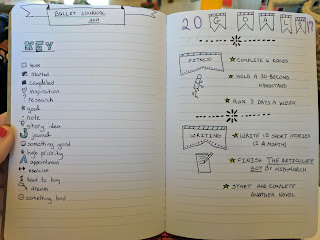 BULLET JOURNAL
2017
KEY
task
started
completed
inspiration
? research
goal
- note
story idea
Journal
something good
high priority
appointment
exercise
$ need to buy
dream
something bad
20 GOALS 17
FITNESS
COMPLETE 6 RACES
HOLD A 30 SECOND
HANDSTAND
RUN 3 DAYS A WEEK
WRITING
WRITE 12 SHORT STORIES
(1 A MONTH)
FINISH THE ARTICULATE
BOY BY MID-MARCH
START AND COMPLETE
ANOTHER NOVEL